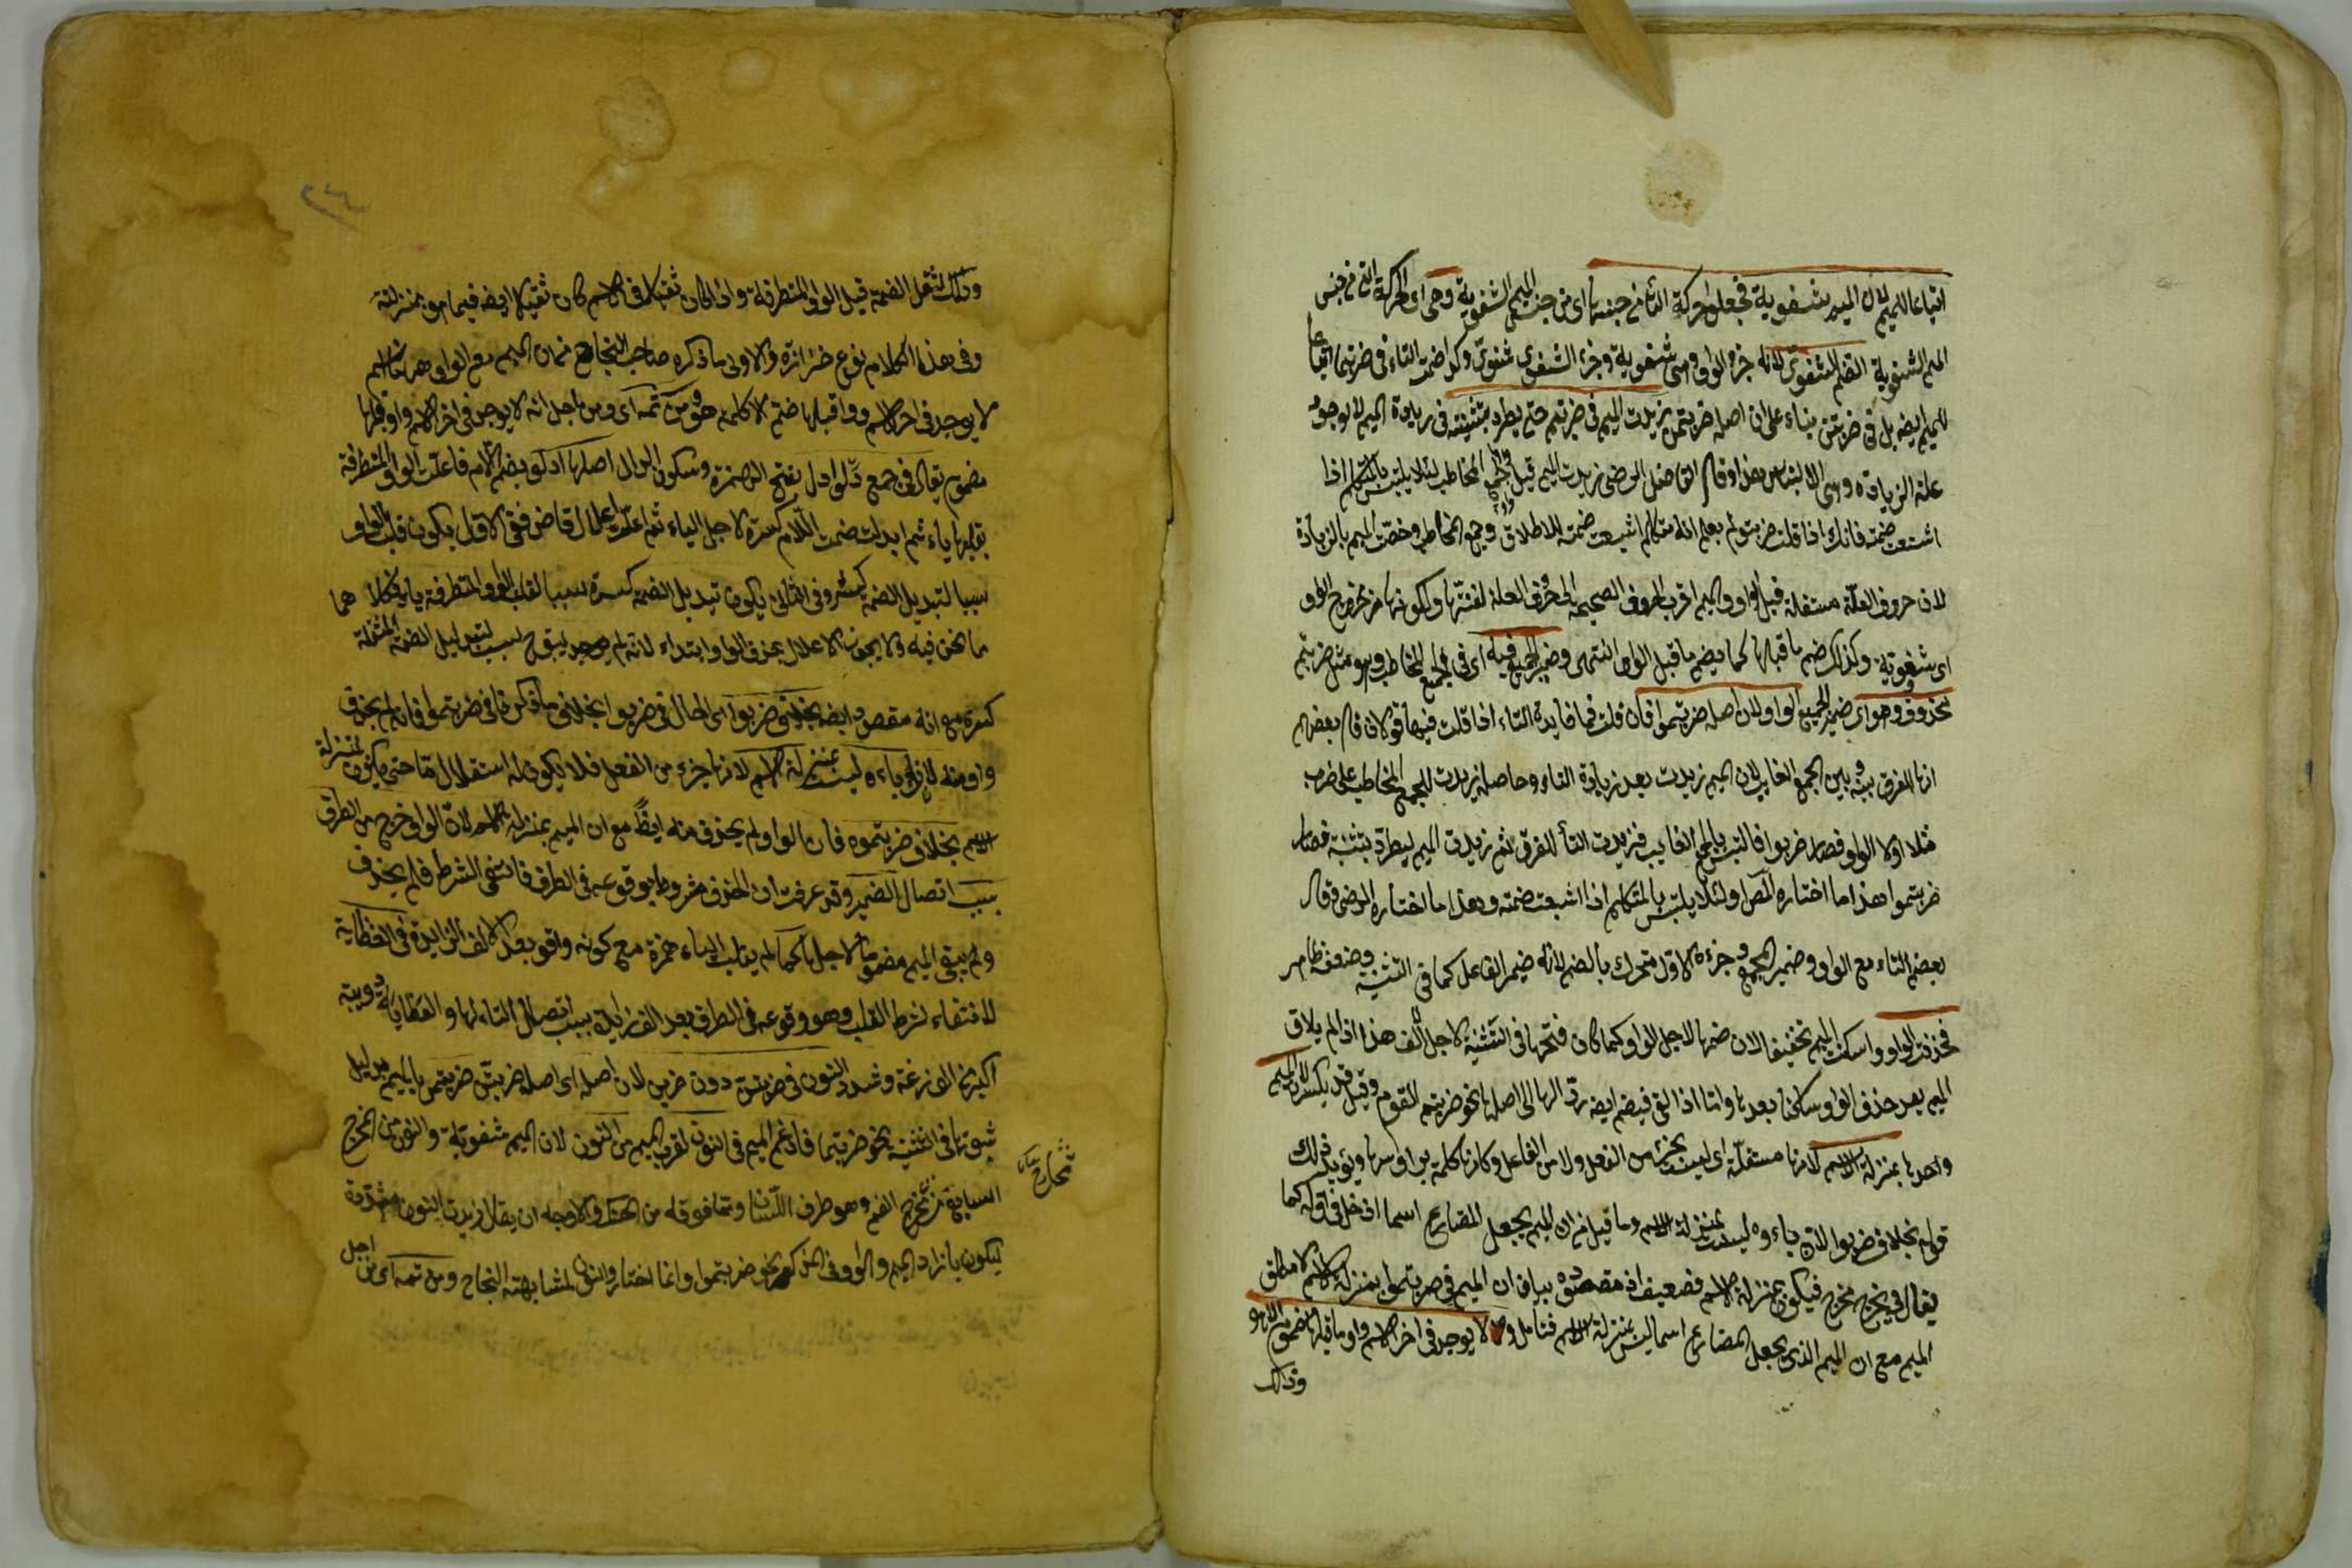 اتباعا للميم لان الميم شفوية فجعلوا حركة التاء من جنسها اى من جنس الميم الشفوية وهى اى الحركة التى من جنس
الميم الشفوية الضم الشفوى لانه جزء الواو وهى شفوية وجزء الشفوى شفوى وكذا ضمت التاء فى ضربتما اتباعا
للميم ايضه بل فى ضربتن بناء على ان اصله ضربتمن زيدت الميم فى ضربتم حتى يطرد بتثنيته فى زيادة الميم لا لوجود
علة الزيادة وهى الالتباس هذا وقال الفاضل الرضى زيدت الميم قبل واو جمع المخاطب لئلا يلتبس بالمتكلم اذا
اشبعت ضمته فانك اذا قلت ضربتو لم يعلم انه متكلم اشبعت ضمته للاطلاق او جمع المخاطب وخصت الميم بالزيادة
لان حروف العلة مستثقلة قبل الواو والميم اقرب الحروف الصحيحة الى حروف العلة لغنتها ولكونها من مخرج الواو
اى شفوية وكذلك ضم ما قبلها كما يضم ما قبل الواو انتهى وضمير الجميع فيه اى فى الجمع المخاطب وهو مثل ضربتم
محذوف وهو اى ضمير الجميع الواو لان اصله ضربتموا فان قلت فما فايدة التاء اذا قلت فيها قولان قال بعضهم
انها للفرق بينه وبين الجمع الغايب لان الميم زيدت بعد زيادة التاء وحاصله زيدت للجمع المخاطب على ضرب
مثلا اولا الواو فصار ضربوا فالتبس بالجمع الغايب فزيدت التاء للفرق ثم زيدت الميم ليطرد بتثنيته فصار
ضربتموا هذا ما اختاره المص او لئلا يلتبس بالمتكلم اذا اشبعت ضمته وهذا ما اختاره الرضى وقال
بعضهم التاء مع الواو ضمير الجمع وجزءه الاول تحرك بالضم لانه ضمير الفاعل كما فى التثنية وضعفه ظاهر
فحذفت الواو واسكنت الميم تخفيفا لان ضمها لاجل الواو كما كان فتحها فى التثنية لاجل الالف هذا اذا لم يلاق
الميم بعد حذف الواو ساكنا بعدها واما اذا لاقى فيضم ايضه ردا لها الى اصلها نحو ضربتم القوم وقيل قد يكسر لان الميم
واحدها بمنزلة الاسم لانها مستقلة اى ليست بجزء من الفعل ولا من الفاعل وكانها كلمة براسها ويؤيد ذلك
قوله بخلاف ضربوا لان باءه ليست بمنزلة الاسم وما قيل من ان الميم يجعل المضارع اسما اذ دخل فى اوله كما
يقال فى يخرج مخرج فيكون بمنزلة الاسم فضعيف اذ مقصوده بيان ان الميم فى ضربتموا بمنزلة الاسم لا مطلق
الميم مع ان الميم الذى يجعل المضارع اسما ليس بمنزلة الاسم فتامل ولا يوجد فى اخر الاسم واو ما قبلها مضموم الا هو
وذلك
وذلك لثقل الضمة قبل الواو المتطرفة واذا كان ثقيلا فى الاسم كان ثقيلا ايضه فيما هو بمنزلته
وفى هذا الكلام نوع حزازة والاولى ما ذكره صاحب النجاح من ان الميم مع الواو هو كالاسم
لا يوجد فى اخر الاسم واو قبلها ضم الا كلمة هو ومن ثمه اى ومن اجل انه لا يوجد فى اخر الاسم واو قبلها
مضموم يقال فى جمع دلو ادل بفتح الهمزة وسكون الدال اصلها ادلو بضم اللام فاعلت الواو المتطرفة
بقلبها ياء ثم ابدلت ضمة اللام كسرة لاجل الياء ثم اعلت اعلال قاض ففى الاول يكون قلب الواو
سببا لتبديل الضمة كسرة وفى الثانى يكون تبديل الضمة كسرة سببا لقلب الواو المتطرفة ياء وكلاهما
ما نحن فيه ولا يجوز الاعلال بحذف الواو ابتداء لانه لم يوجد سبب لتبديل الضمة
كسرة مع انه مقصود ايضه بخلاف ضربوا اى الحال فى ضربوا بخلاف ما ذكرنا فى ضربتموا فانه لم يحذف
واو منه لان باءه ليست بمنزلة الاسم لانها جزء من الفعل فلا يكون له استقلال ما حتى يكون بمنزلة
الاسم بخلاف ضربتموه فان الواو لم يحذف منه ايضا مع ان الميم بمنزلة الاسم لان الواو خرج من الطرف
بسبب اتصال الضمير وقد عرفت ان الحذف مشروط بوقوعه فى الطرف فانتفى الشرط فلم يحذف
ولم يبق الميم مضموما لاجلها كما لم يقلب الياء همزة مع كونه واقعا بعد الالف الزايدة فى العظاية
لانتفاء شرط القلب وهو وقوعه فى الطرف بعد الف زايدة بسبب اتصال التاء لها والعظاية دويبة
اكبر من الوزغة وشدد النون فى ضربتن دون ضربن لان اصله اى اصل ضربتن ضربتمن بالميم بدليل
ثبوتها فى التثنية نحو ضربتما فادغم الميم فى النون لقرب الميم من النون لان الميم شفوية والنون من المخرج
السابع من مخرج الفم وهو طرف اللسان وما فوقه من الحنك والاوجه ان يقال زيدت النون مشددة
ليكون بازاء الميم والواو فى المذكر نحو ضربتموا وانما اختار والنون لمشابهته النجاح ومن ثمه اى من اجل